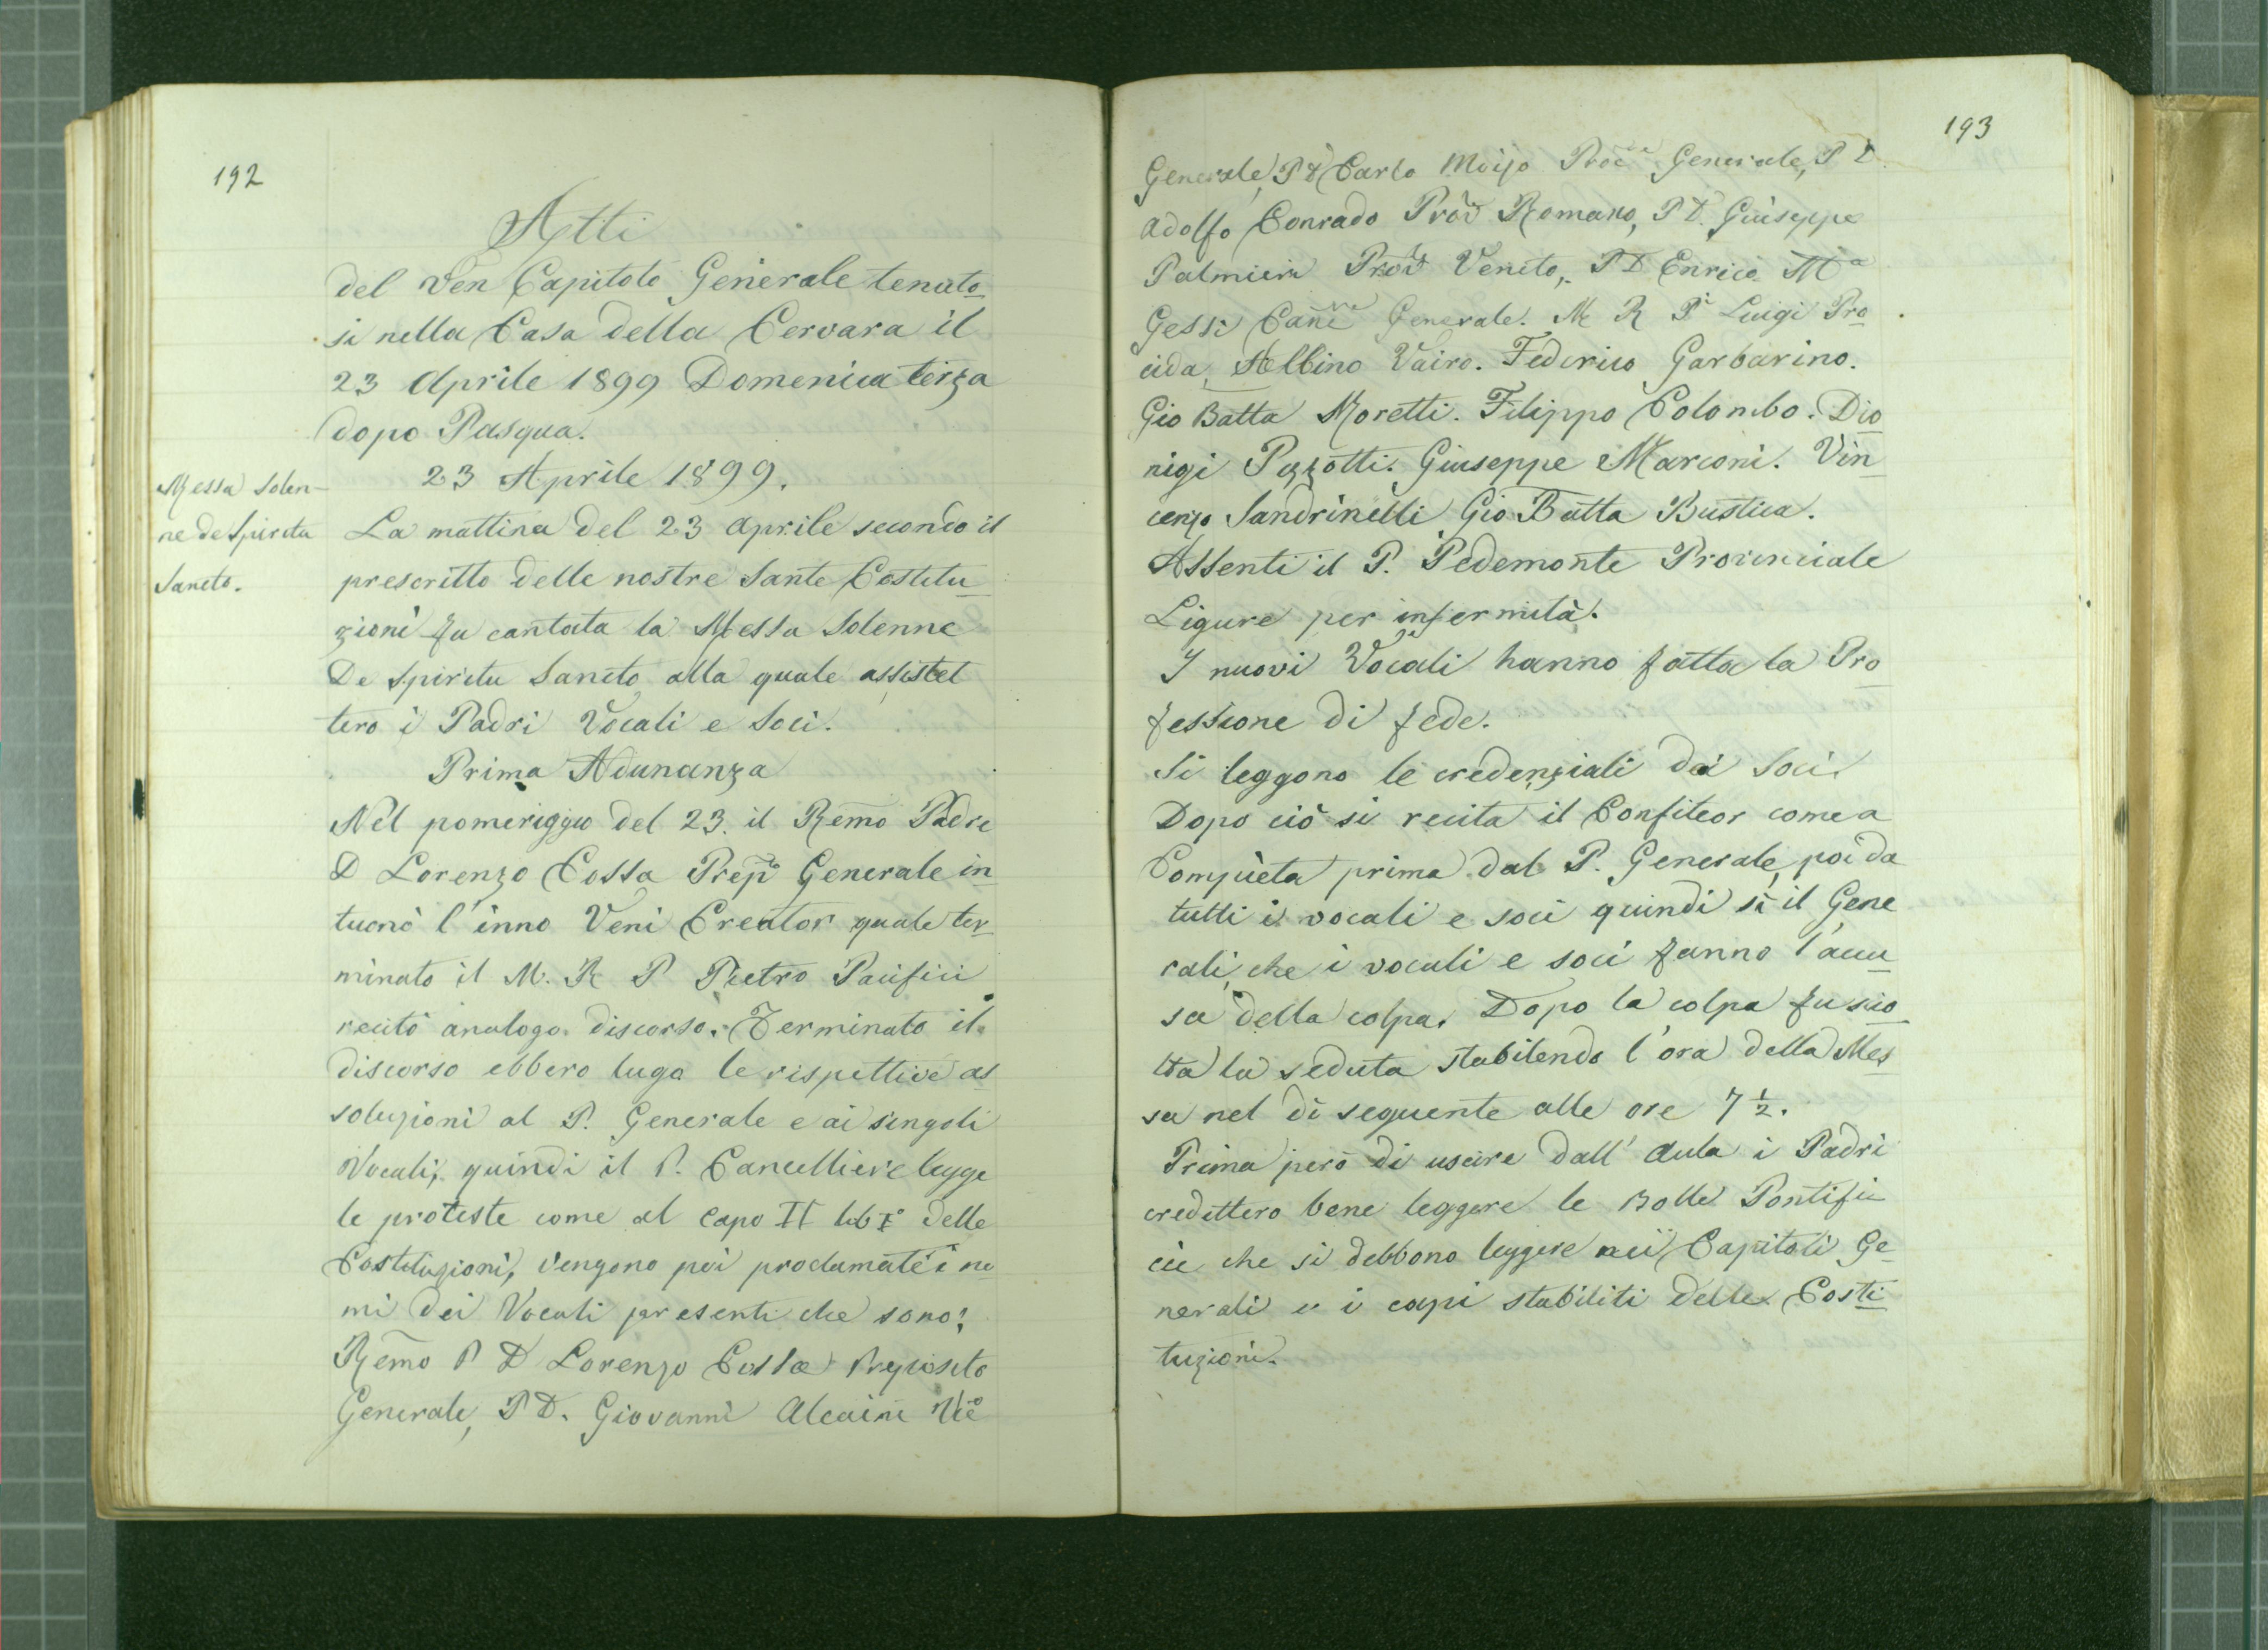 192
Atti
del Ven Capitolo Generale tenuto
si nella Casa della Cervara il
23 Aprile 1899 Domenica terza
dopo Pasqua.
23 Aprile 1899.
Messa Solen-
ne de Spiritu
Sancto.
La mattina del 23 Aprile secondo il
prescritto delle nostre Sante Costitu
zioni fu cantata la Messa Solenne
De Spiritu Sancto alla quale assistet
tero i Padri Vocali e Soci.
Prima Adunanza
Nel pomeriggio del 23. il Remo Padre
D Lorenzo Cossa Prepto Generale in
tuonò l'inno Veni Creator quale ter
minato il M. R P Pietro Pacifici
recitò analogo discorso. Terminato il
discorso ebbero lugo le rispettive as
soluzioni al P. Generale e ai singoli
Vocali, quindi il P. Cancelliere legge
le proteste come al Capo II lib I° delle
Costituzioni, vengono poi proclamate i no
mi dei Vocali presenti che sono:
Remo P D Lorenzo Cossa Preposito
Generale, P D. Giovanni Alcaini Vic
193
Generale, P D Carlo Moizo Procre Generale, P D
Adolfo Conrado Prov Romano, P D. Giuseppe
Palmieri Prov Veneto, P D Enrico Ma
Gessi Cancre Generale. M R P Luigi Pro
cida, Albino Vairo. Federico Garbarino.
Gio Batta Moretti. Filippo Colombo. Dio
nigi Pizzotti. Giuseppe Marconi. Vin
cenzo Sandrinelli Gio Batta Bustica.
Assenti il P. Pedemonte Provinciale
Ligure per infermità.
I nuovi Vocali hanno fatta la Pro
fessione di fede.
Si leggono le credenziali dei Soci.
Dopo ciò si recita il Confiteor come a
Compieta prima dal P. Generale, poi da
tutti i vocali e soci quindi sì il Gene
rali, che i vocali e soci fanno l'accu
sa della colpa. Dopo la colpa fu scio
lta la seduta stabilendo l'ora della Mes
sa nel dì seguente alle ore 7 1/2.
Prima però di uscire dall' Aula i Padri
credettero bene leggere le Bolle Pontifi
cie che si debbono leggere nei Capitoli Ge
nerali e i capi stabiliti delle Costi
tuzioni.